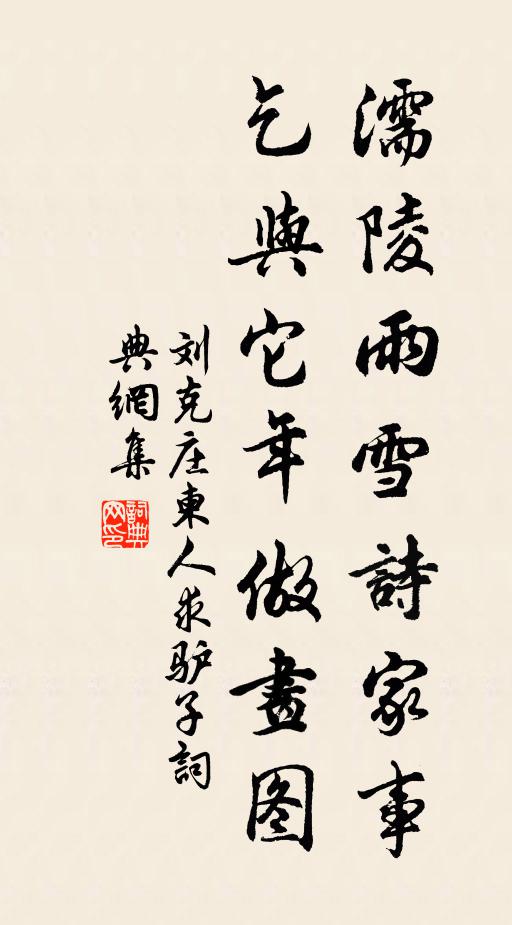 濡陵雨雪詩家事
乞與它年做畫图
刘克庄東人求驴子詞
典網集
詞典网印